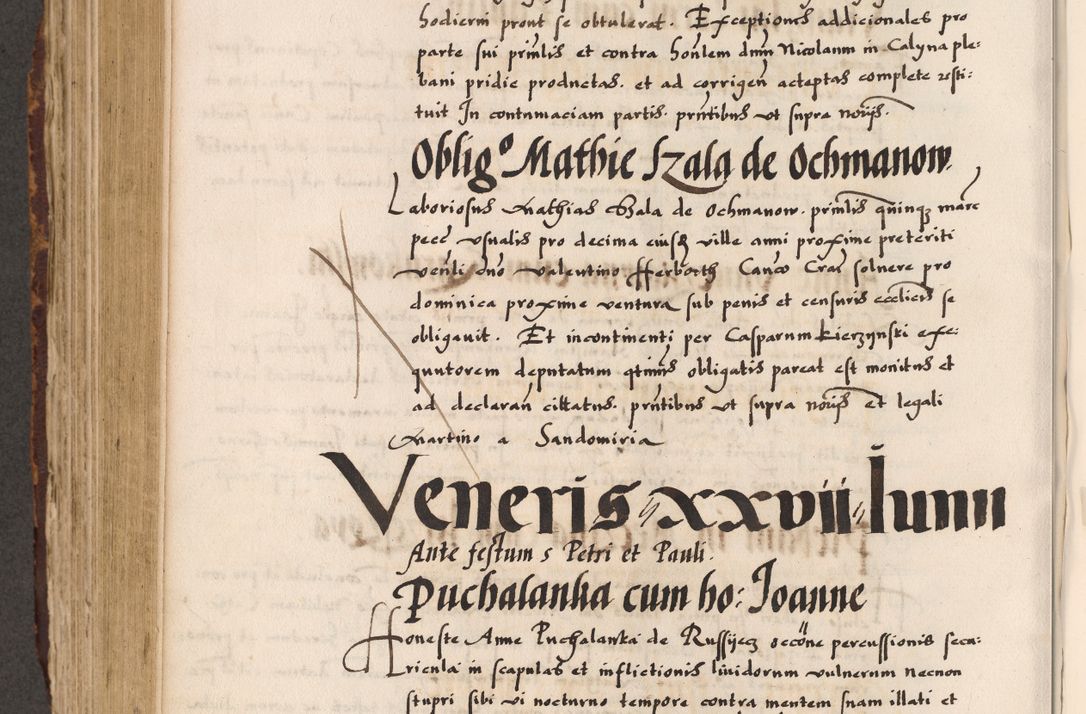 hodierni prout se obtulerat. Exceptiones addicionales pro
parte sui prīnlis et contra honlem dnm Nicolaum in Calyna ple:
bani pridie productas. et ad corrigen acceptas complete resti:
tuit In contumaciam partis. prntibus ut supra noriis.
Oblig.º Mathie Szala de Ochmanow.
Laboriosus Mathias Szala de Ochmanow. prīnlis quinq marc
pecc usualis pro decima eiusq ville anni proxime preteriti
venli dno Valentino Herborth Canco Crac solvere pro
dominica proxime ventura sub penis et censuris ecclicis se
obligavit. Et incontinenti per Casparum kierzynski exe:
quutorem deputatum qtinus obligatis pareat est monitus et
ad declaran cittatus. prntibus ut supra noriis et legali
Martino a Sandomiria
Veneris xxvii Iunii
Ante festum s Petri et Pauli.
Puchalanka cum ho: Joanne
Honeste Anne Puchalanka de Russyecz occone percussionis secu:
ricula in scapulas et inflictionis lividorum vulnerum necnon
stupri sibi vi nocturno tempore contra mentem suam illati et